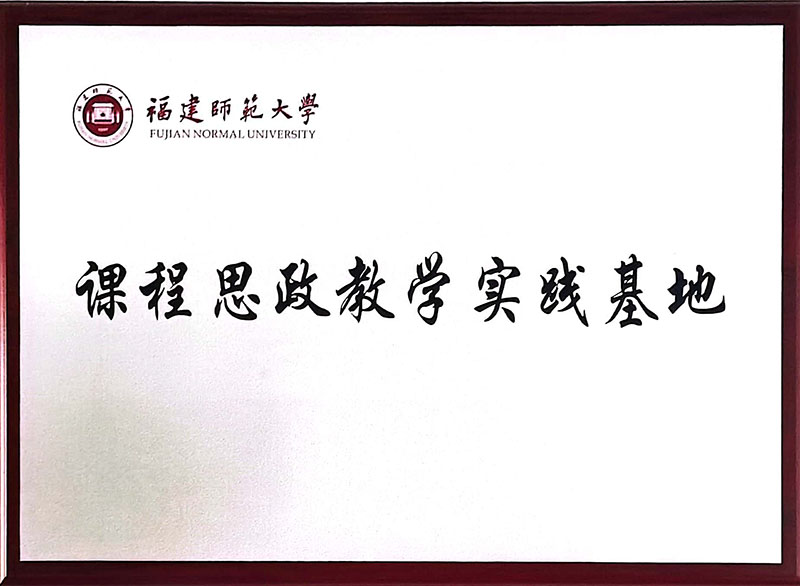 福建師範大學
FUJIAN NORMAL UNIVERSITY
课程思政教学实践基地